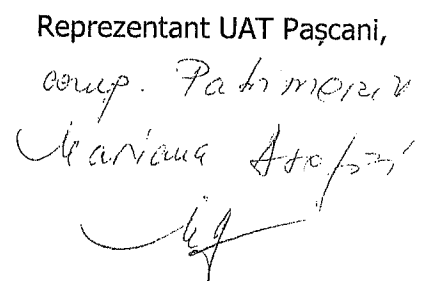 Reprezentant UAT Pașcani,
comp. Patrimoniu
Mariana